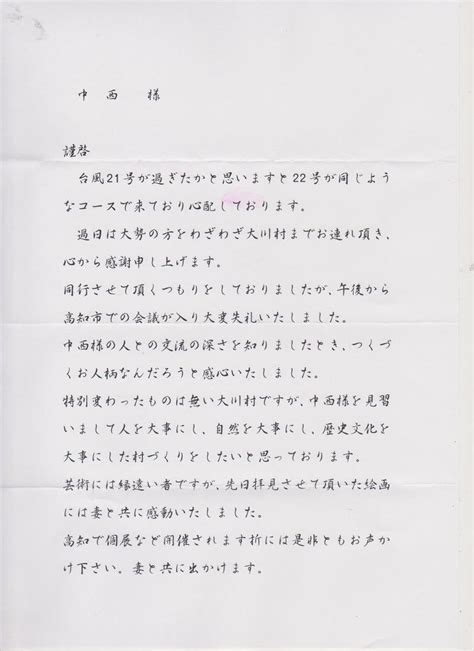 中西 様
謹啓
台風21号が過ぎたかと思いますと22号が同じよう
なコースで来ており心配しております。
過日は大勢の方をわざわざ大川村までお連れ頂き、
心から感謝申し上げます。
同行させて頂くつもりをしておりましたが、午後から
高知市での会議が入り大変失礼いたしました。
中西様の人との交流の深さを知りましたとき、つくづ
くお人柄なんだろうと感心いたしました。
特別変わったものは無い大川村ですが、中西様を見習
いまして人を大事にし、自然を大事にし、歴史文化を
大事にした村づくりをしたいと思っております。
芸術には縁遠い者ですが、先日拝見させて頂いた絵画
には妻と共に感動いたしました。
高知で個展など開催されます折には是非ともお声か
け下さい。妻と共に出かけます。